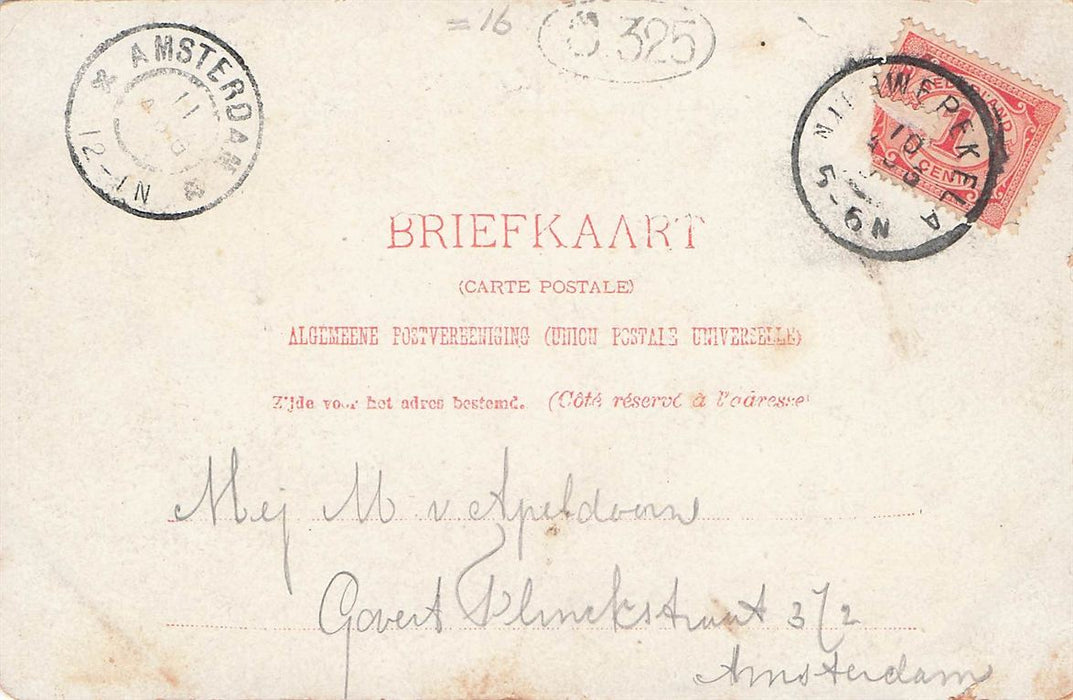 =16 325
AMSTERDAM
11
12-1N
NEDERLAND
1
CENT
10
5-6N
BRIEFKAART
(CARTE POSTALE)
ALGEMEENE POSTVEREENIGING (UNION POSTALE UNIVERSELLE)
Zijde voor het adres bestemd. (Côté réservé à l'adresse)
Mej M v Apeldoorn
Govert Flinckstraat 3/2
Amsterdam